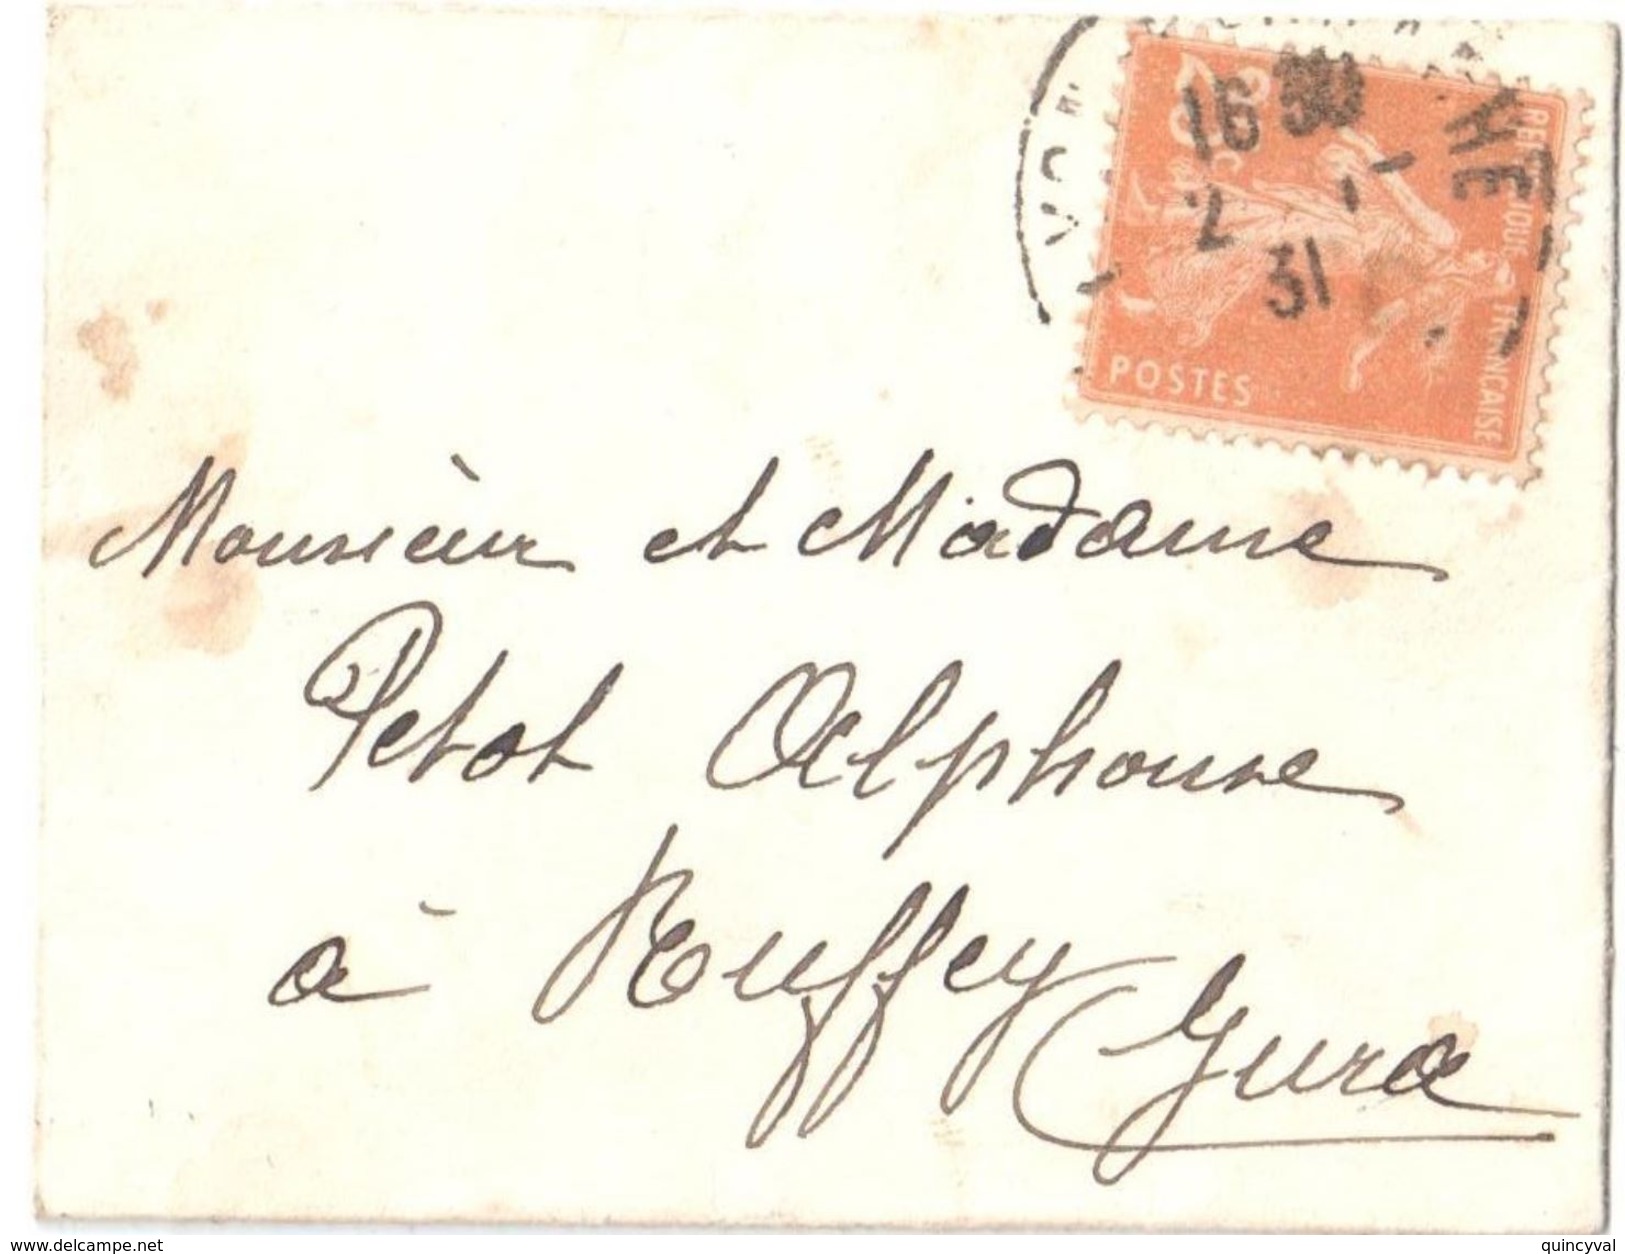 16 30
2 -1
31
25c
REPUBLIQUE FRANÇAISE
POSTES
Monsieur et Madame
Petot Alphonse
à Ruffey
Jura
www.delcampe.net
quincyval